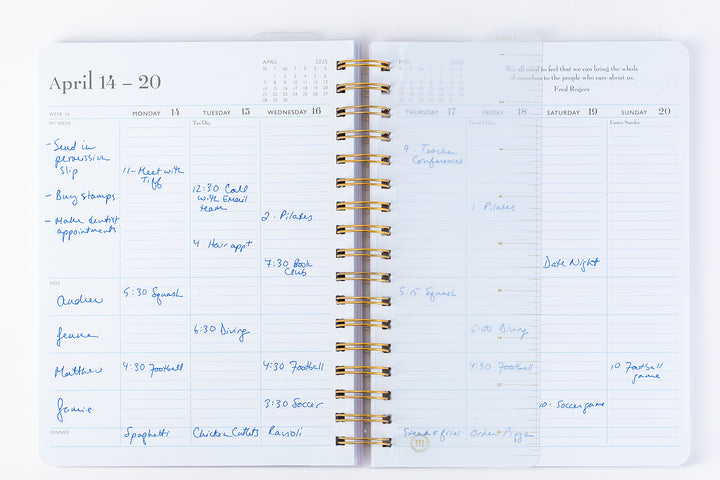 TODAY
April 14 – 20
APRIL 2025
MAY 2025
We all need to feel that we can bring the whole
of ourselves to the people who care about us.
Fred Rogers
WEEK 16
MONDAY 14
TUESDAY 15
WEDNESDAY 16
THURSDAY 17
FRIDAY 18
SATURDAY 19
SUNDAY 20
MY WEEK
Tax Day
Good Friday
Easter Sunday
- Send in
permission
slip
- Buy stamps
- Make dentist
appointments
11- Meet with
Tiff
12:30 Call
with Email
team
4 Hair appt
2 - Pilates
7:30 Book
Club
9 - Teacher
Conferences
1 - Pilates
Date Night
KIDS
Andrew
5:30 Squash
5:15 Squash
Jenna
6:30 Diving
6:00 Diving
Matthew
4:30 Football
4:30 Football
4:30 Football
10 Football
game
Jamie
3:30 Soccer
10 - Soccer game
DINNER
Spaghetti
Chicken Cutlets
Ravioli
Steak & fries
Order Pizza
m